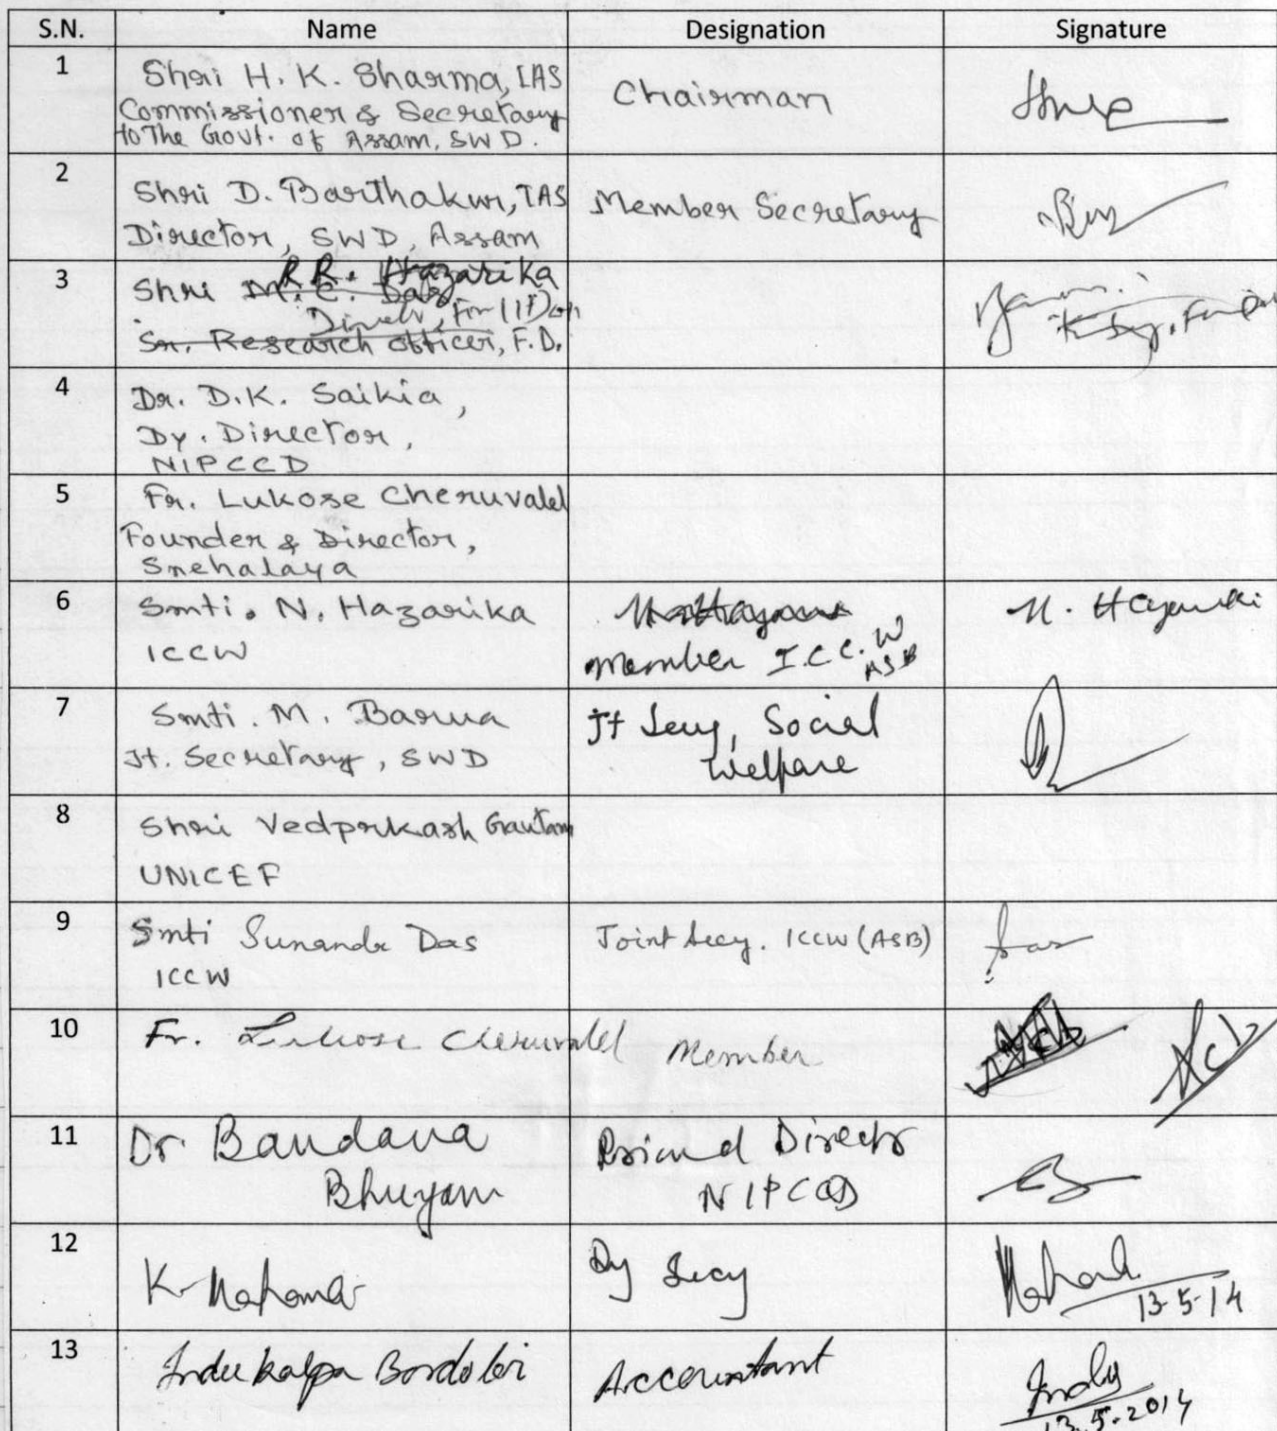 S.N. Name Designation Signature
1 Shri H. K. Sharma, IAS
Commissioner & Secretary
to The Govt. of Assam, SWD.
Chairman
2 Shri D. Barthakur, IAS
Director, SWD, Assam
Member Secretary
3 R.R. Hazarika
Shri M. C. Das
Sr. Research officer, F.D.
4 Dr. D.K. Saikia,
Dy. Director,
NIPCCD
5 Fr. Lukose Cheruvalel
Founder & Director,
Snehalaya
6 Smti. N. Hazarika
ICCW
Member I.C.C.W
ASB
N. Hazarika
7 Smti. M. Barua
Jt. Secretary, SWD
Jt Secy, Social
Welfare
8 Shri Vedprkash Gautam
UNICEF
9 Smti Sunanda Das
ICCW
Joint Secy. ICCW (ASB)
Das
10 Fr. Lukose Cheruvalel Member
11 Dr Bandana
Bhuyan
Director
NIPCCD
12 K
Dy Secy
13-5-14
13 Indukalpa Bordoloi
Accountant
13.5.2014